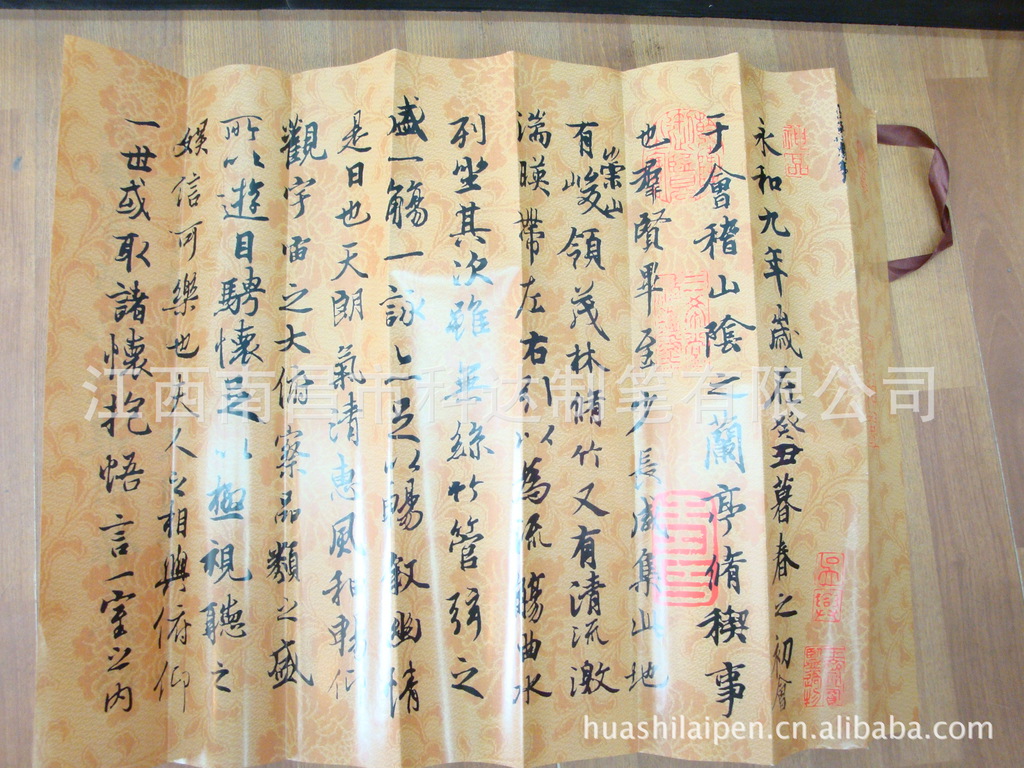 永和九年歲在癸丑暮春之初會
于會稽山陰之蘭亭脩稧事
也羣賢畢至少長咸集此地
有崇山峻領茂林脩竹又有清流激
湍暎帶左右引以為流觴曲水
列坐其次雖無絲竹管弦之
盛一觴一詠亦足以暢敘幽情
是日也天朗氣清惠風和暢仰
觀宇宙之大俯察品類之盛
所以遊目騁懷足以極視聽之
娛信可樂也夫人之相與俯仰
一世或取諸懷抱悟言一室之內
江西南昌市科达制笔有限公司
huashilaipen.cn.alibaba.com